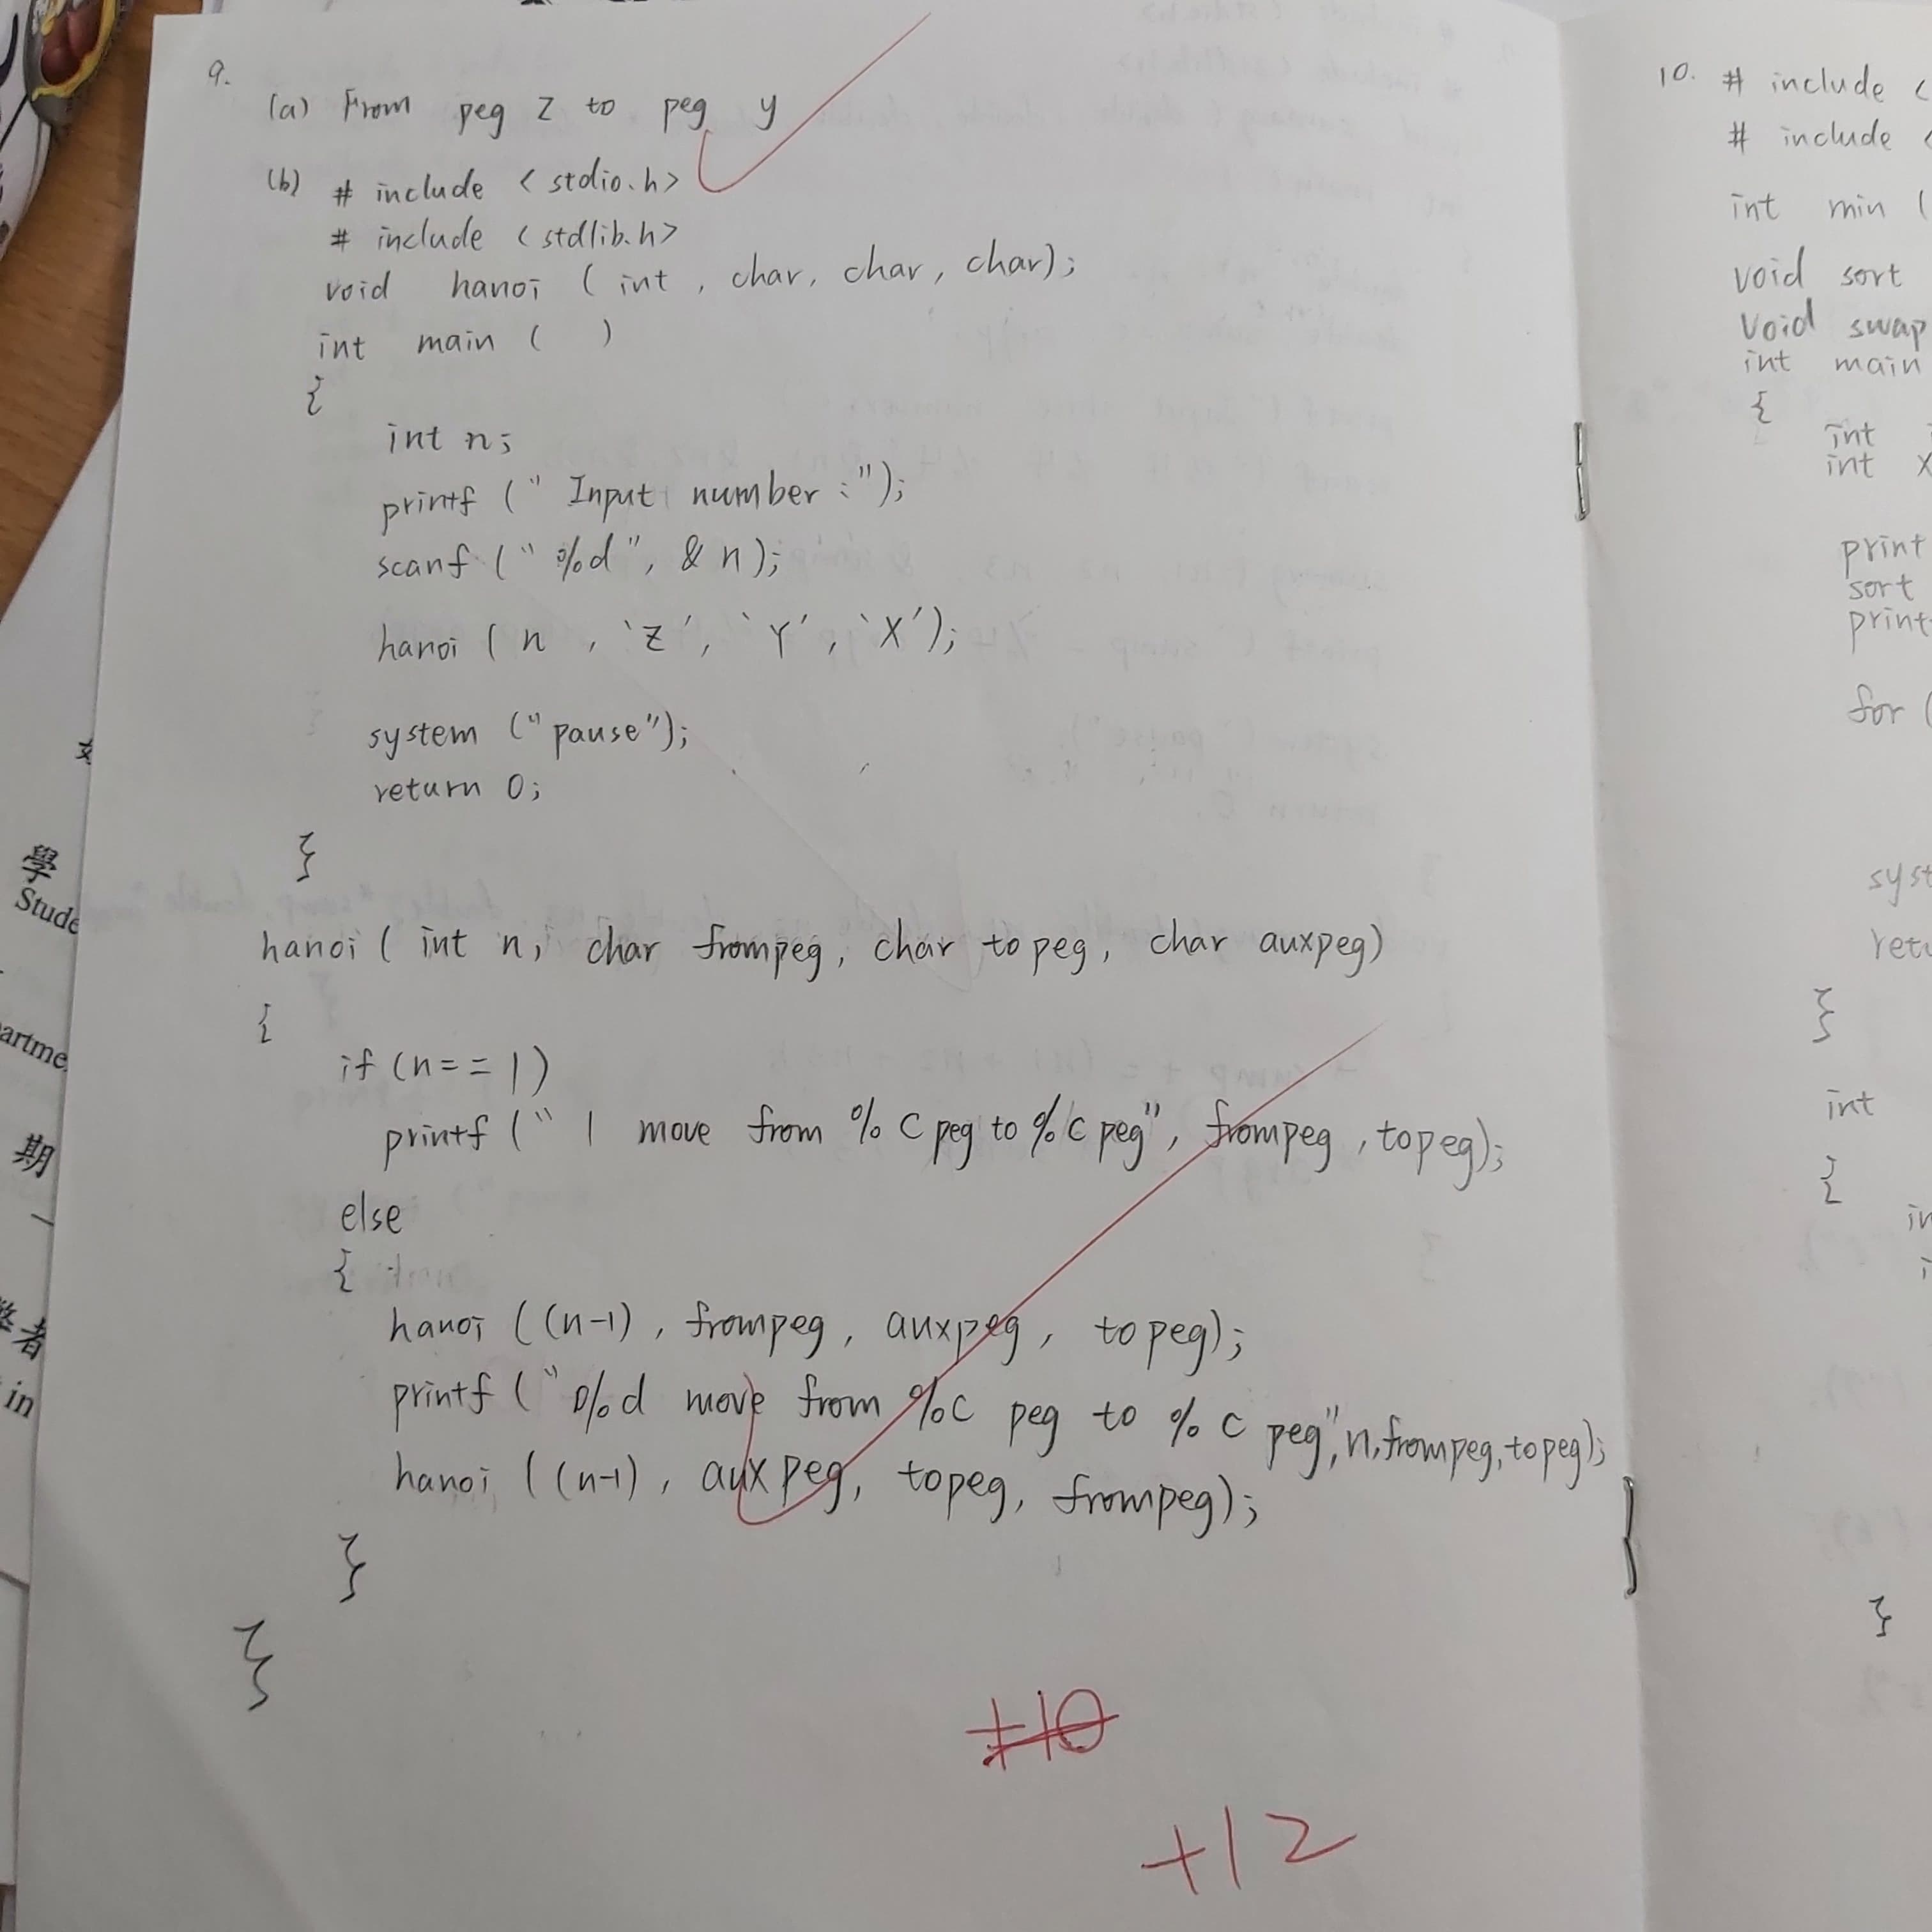 9.
(a) From peg Z to peg y
(b) # include < stdio.h>
# include < stdlib.h>
void hanoi ( int , char, char, char);
int main ( )
{
int n;
printf (" Input number :");
scanf (" %d", & n);
hanoi ( n , 'Z', 'Y', 'X');
system ("pause");
return 0;
}
hanoi ( int n, char frompeg, char topeg, char auxpeg)
{
if (n==1)
printf (" 1 move from %c peg to %c peg", frompeg, topeg);
else
{
hanoi ((n-1), frompeg, auxpeg, topeg);
printf ("%d move from %c peg to %c peg", n, frompeg, topeg);
hanoi ((n-1), auxpeg, topeg, frompeg);
}
}
+10
+12
10. # include <
# include <
int min (
void sort
void swap
int main
{
int
int X
print
sort
print
for (
syst
retu
}
int
{
in
i
}
學
Stude
artme
期
者
in